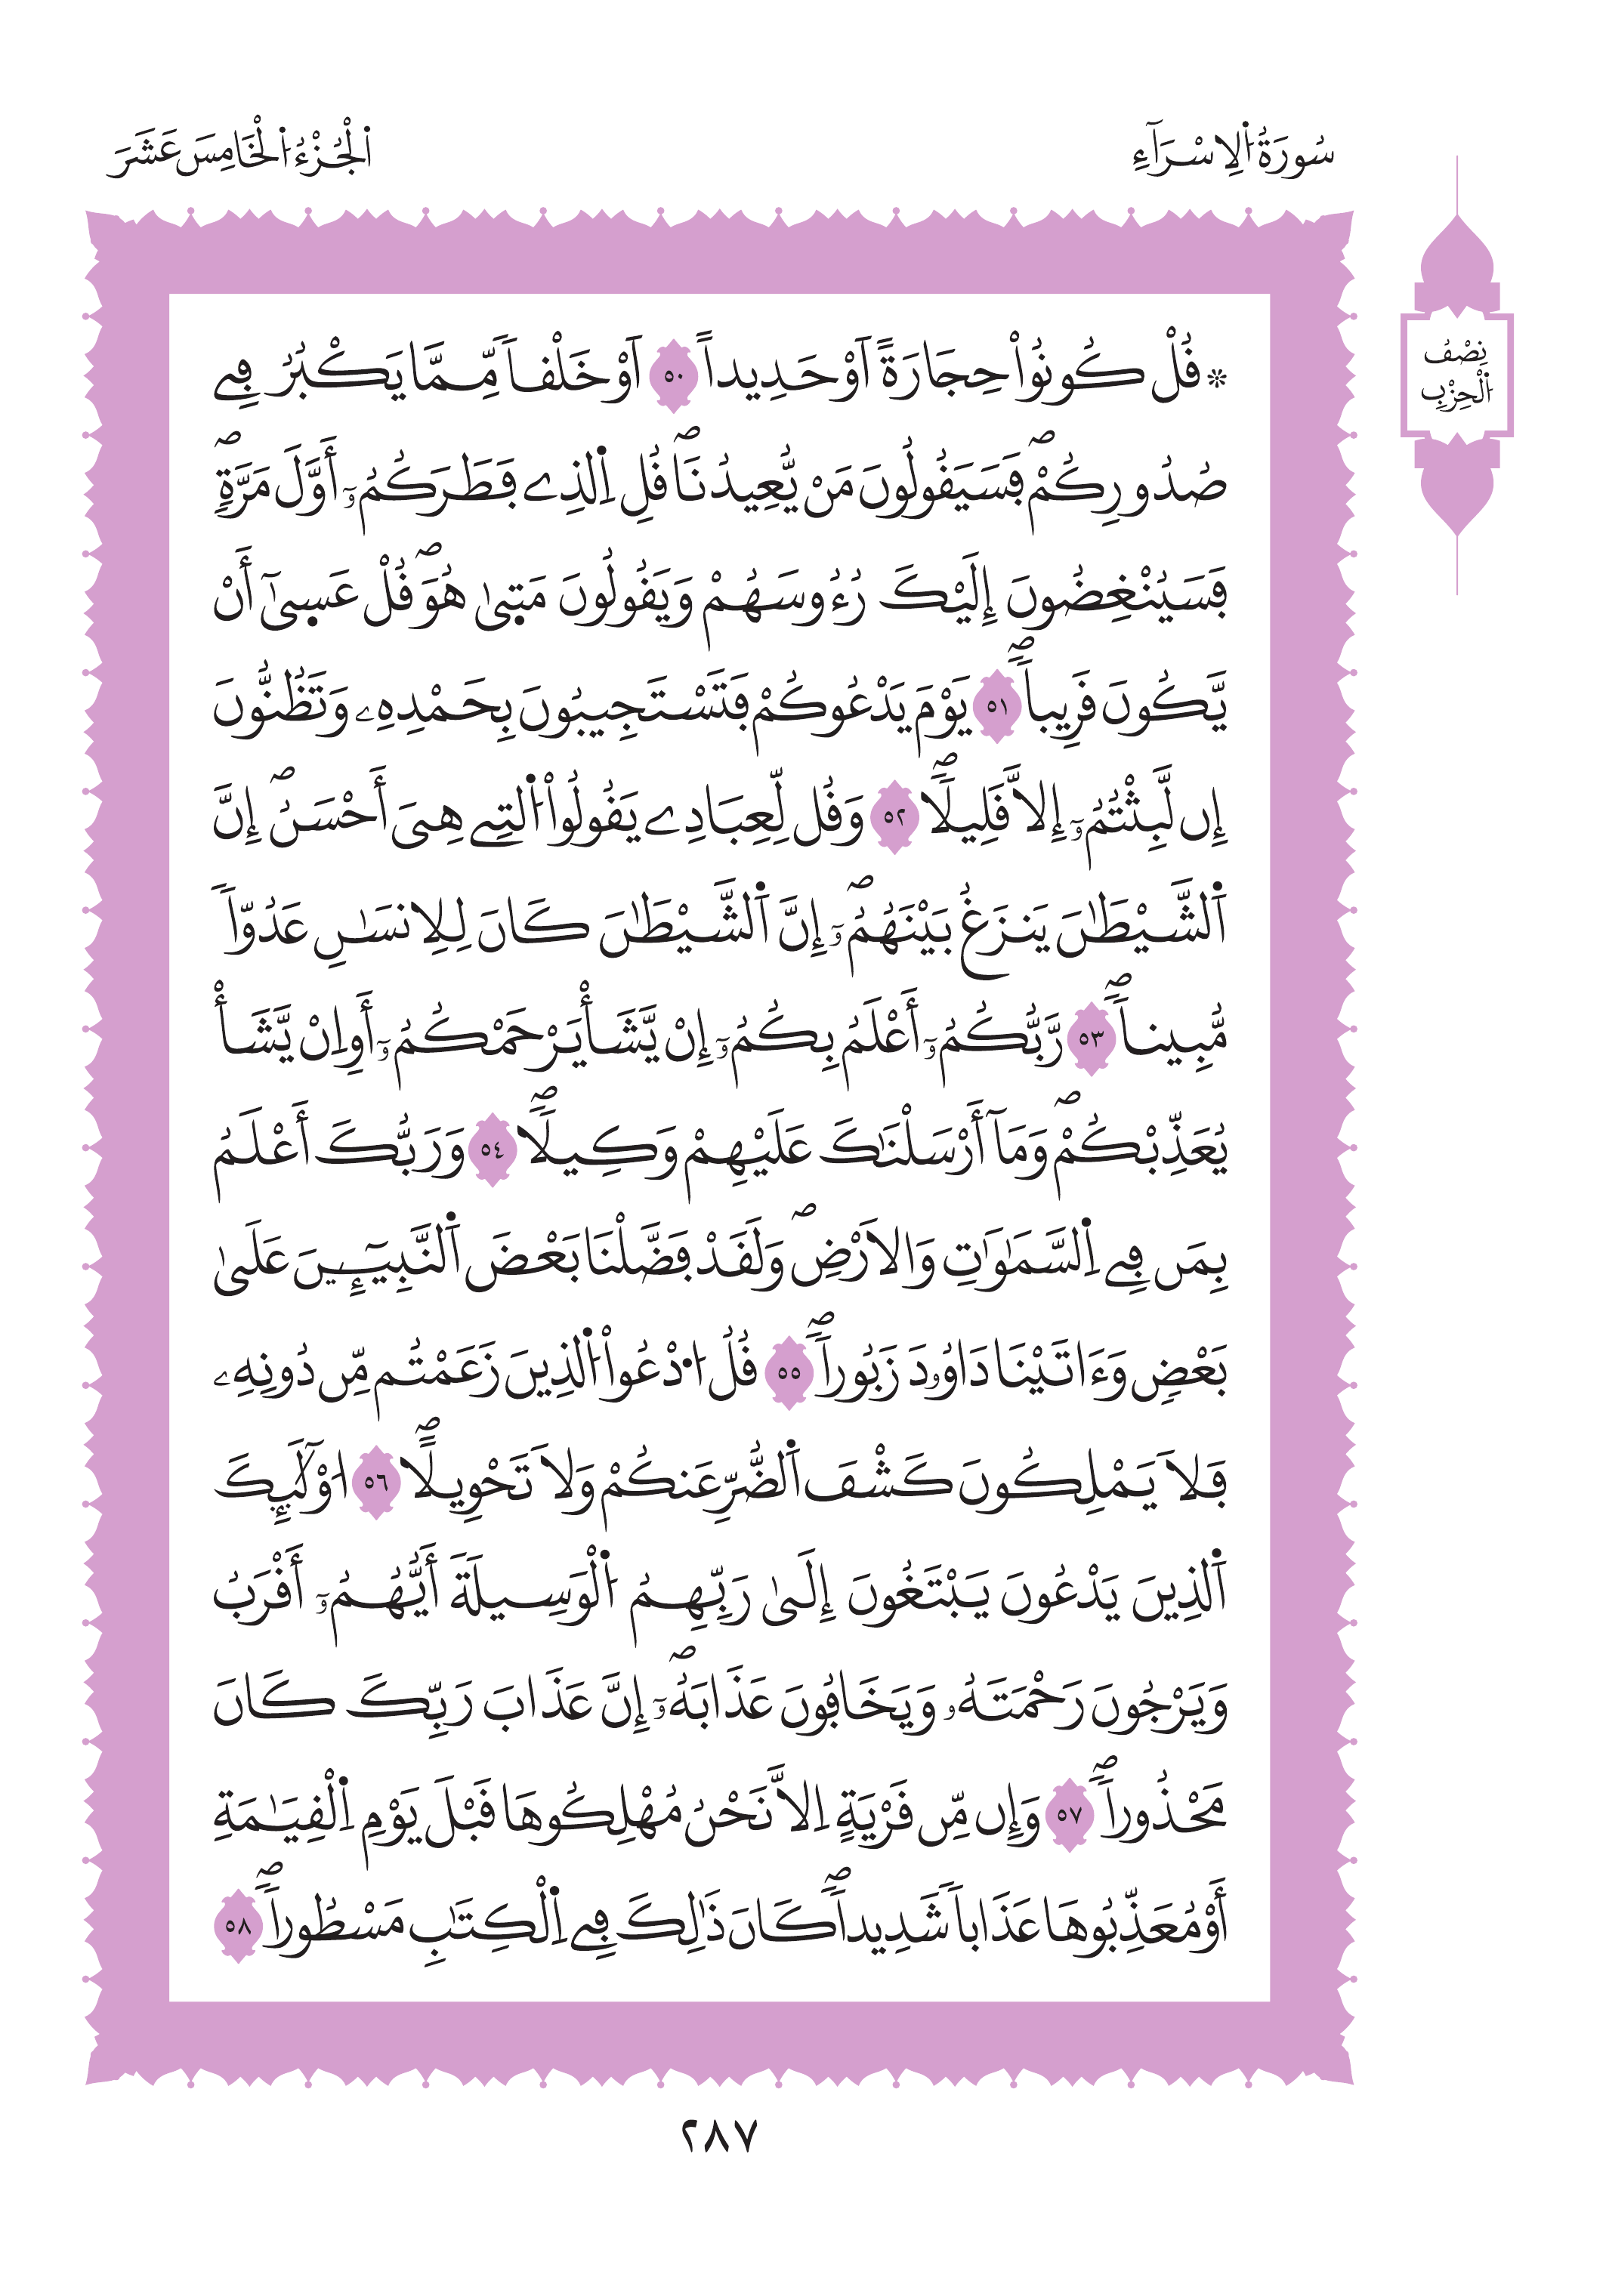 سُورَةُ اُ۬لِاسْرَآءِ
اَ۬لْجُزْءُ اُ۬لْخَامِسَ عَشَرَ
نِصْفُ
اُ۬لْحِزْبِ
* فُلْ كُونُواْ حِجَارَةً اَوْ حَدِيداً ٥٠ اَوْ خَلْفاٗ مِّمَّا يَكْبُرُ فِے
صُدُورِكُمْۖ فَسَيَفُولُونَ مَنْ يُّعِيدُنَاۖ فُلِ اِ۬لذِے فَطَرَكُمُۥٓ أَوَّلَ مَرَّةٖۖ
فَسَيُنْغِضُونَ إِلَيْكَ رُءُوسَهُمْ وَيَفُولُونَ مَتۭيٰ هُوَۖ فُلْ عَسۭيٰٓ أَنْ
يَّكُونَ فَرِيباٗۖ ٥١ يَوْمَ يَدْعُوكُمْ فَتَسْتَجِيبُونَ بِحَمْدِهِۦ وَتَظُنُّونَ
إِن لَّبِثْتُمُۥٓ إِلاَّ فَلِيلاٗۖ ٥٢ وَفُل لِّعِبَادِے يَفُولُواْ اُ۬لتِے هِىَ أَحْسَنُۖ إِنَّ
اَ۬لشَّيْطَٰنَ يَنزَغُ بَيْنَهُمُۥٓۖ إِنَّ اَ۬لشَّيْطَٰنَ كَانَ لِلِانسَٰنِ عَدُوّاٗ
مُّبِيناٗۖ ٥٣ رَّبُّكُمُۥٓ أَعْلَمُ بِكُمُۥٓ إِنْ يَّشَأْ يَرْحَمْكُمُۥٓ أَوِ اِنْ يَّشَأْ
يُعَذِّبْكُمْۖ وَمَآ أَرْسَلْنَٰكَ عَلَيْهِمْ وَكِيلاٗۖ ٥٤ وَرَبُّكَ أَعْلَمُ
بِمَن فِے اِ۬لسَّمَٰوَٰتِ وَالَارْضِۖ وَلَفَدْ فَضَّلْنَا بَعْضَ اَ۬لنَّبِيٓـِٕينَ عَلَيٰ
بَعْضٖ وَءَاتَيْنَا دَاوُۥدَ زَبُوراٗۖ ٥٥ فُلُ اُ۟دْعُواْ اُ۬لذِينَ زَعَمْتُم مِّن دُونِهِۦ
فَلاَ يَمْلِكُونَ كَشْفَ اَ۬لضُّرِّ عَنكُمْ وَلاَ تَحْوِيلاًۖ ٥٦ ا۟وْلَٰٓئِكَ
اَ۬لذِينَ يَدْعُونَ يَبْتَغُونَ إِلَيٰ رَبِّهِمُ اُ۬لْوَسِيلَةَ أَيُّهُمُۥٓ أَفْرَبُ
وَيَرْجُونَ رَحْمَتَهُۥ وَيَخَافُونَ عَذَابَهُۥٓۖ إِنَّ عَذَابَ رَبِّكَ كَانَ
مَحْذُوراٗۖ ٥٧ وَإِن مِّن فَرْيَةٍ اِلاَّ نَحْنُ مُهْلِكُوهَا فَبْلَ يَوْمِ اِ۬لْفِيَٰمَةِ
أَوْ مُعَذِّبُوهَا عَذَاباٗ شَدِيداٗۖ كَانَ ذَٰلِكَ فِے اِ۬لْكِتَٰبِ مَسْطُوراٗۖ ٥٨
٢٨٧